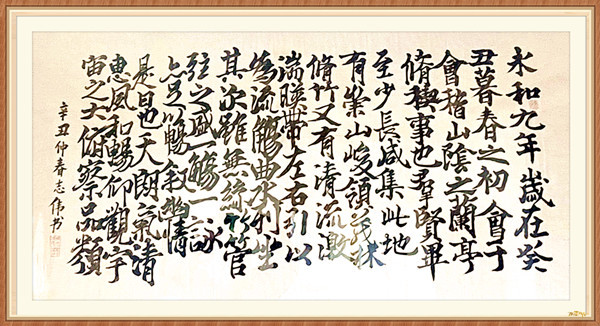 永和九年歲在癸
丑暮春之初會于
會稽山陰之蘭亭
脩稧事也羣賢畢
至少長咸集此地
有崇山峻領茂林
脩竹又有清流激
湍暎帶左右引以
為流觴曲水列坐
其次雖無絲竹管
弦之盛一觴一詠
亦足以暢敘幽情
是日也天朗氣清
惠風和暢仰觀宇
宙之大俯察品類
辛丑仲春志伟书